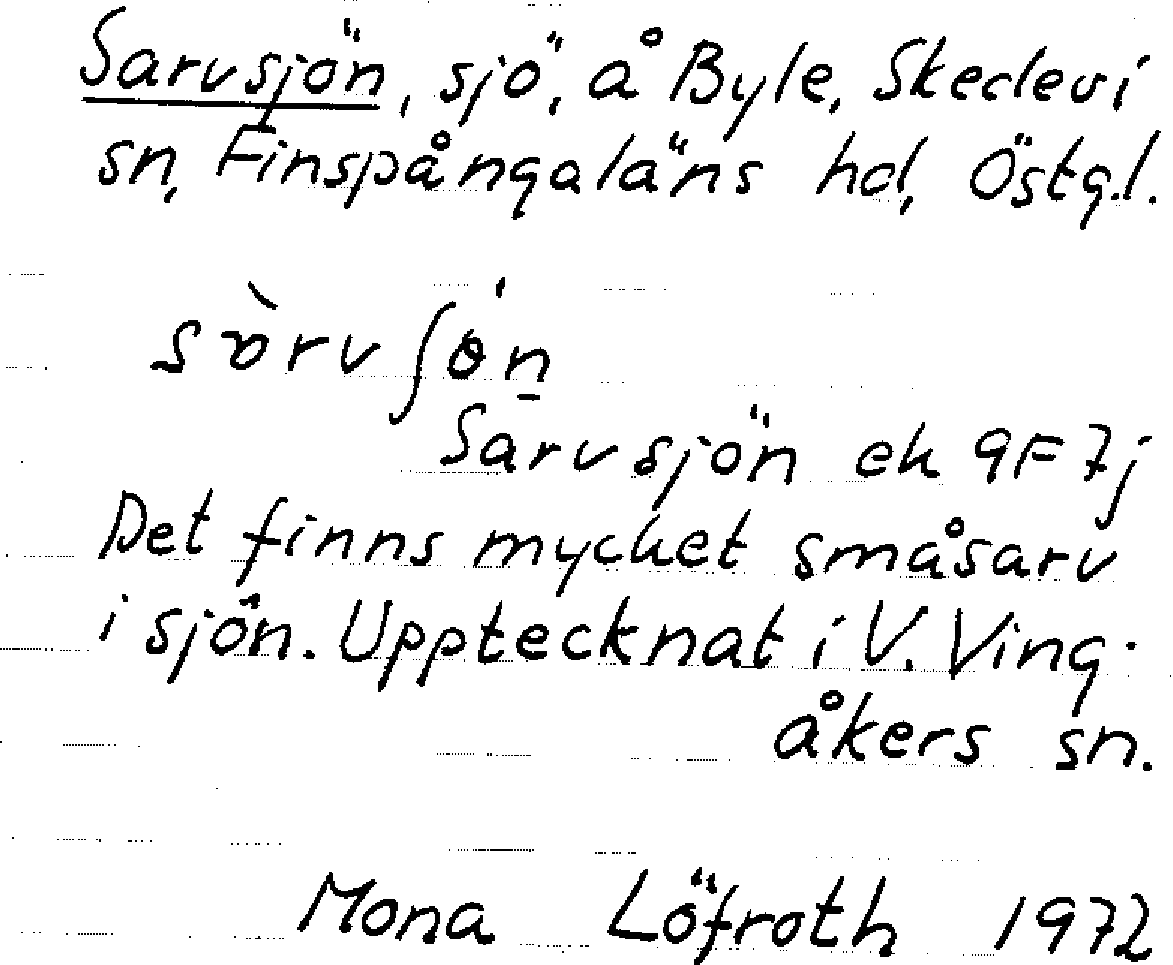 Sarvsjön, sjö, å Byle, Skedevi
sn, Finspångaläns hd, Östg.l.
sòrvʃөn̲
Sarvsjön ek 9F7j
Det finns mycket småsarv
i sjön. Upptecknat i V. Ving-
åkers sn.
Mona Löfroth 1972